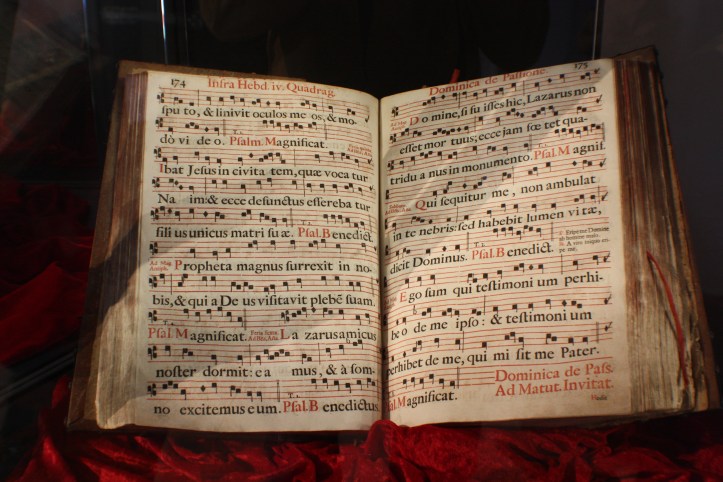 174
Infra Hebd. iv. Quadrag.
ſpu to, & linivit oculos me os, & mo-
dò vi de o. Pſalm. Magnificat.
Ibat Jesus in civita tem, quæ voca tur
Na im: & ecce defunctus efferеba tur
fili us unicus matri ſu æ. Pſal. Benedict.
Ad Mag. Antiph.
Propheta magnus ſurrexit in no-
bis, & qui a De us viſitavit plebē ſuam.
Pſal. Magnificat. La zarus amicus
noſter dormit: e a mus, & à ſom-
no excitemus eum. Pſal. Benedictus.
Dominica de Paſſione.
175
Do mine, ſi fu iſſes hic, Lazarus non
eſſet mor tuus; ecce jam fœ tet qua-
tridu a nus in monumento. Pſal. Magnif.
Qui ſequitur me, non ambulat
in te nebris: ſed habebit lumen vi tæ,
dicit Dominus. Pſal. Benedict.
℣. Eripe me Domine
ab homine malo.
℟. A viro iniquo eri-
pe me.
Ego ſum qui teſtimoni um perhi-
be o de me ipſo: & teſtimoni um
perhibet de me, qui mi ſit me Pater.
Pſal. Magnificat.
Dominica de Paſſ.
Ad Matut. Invitat.